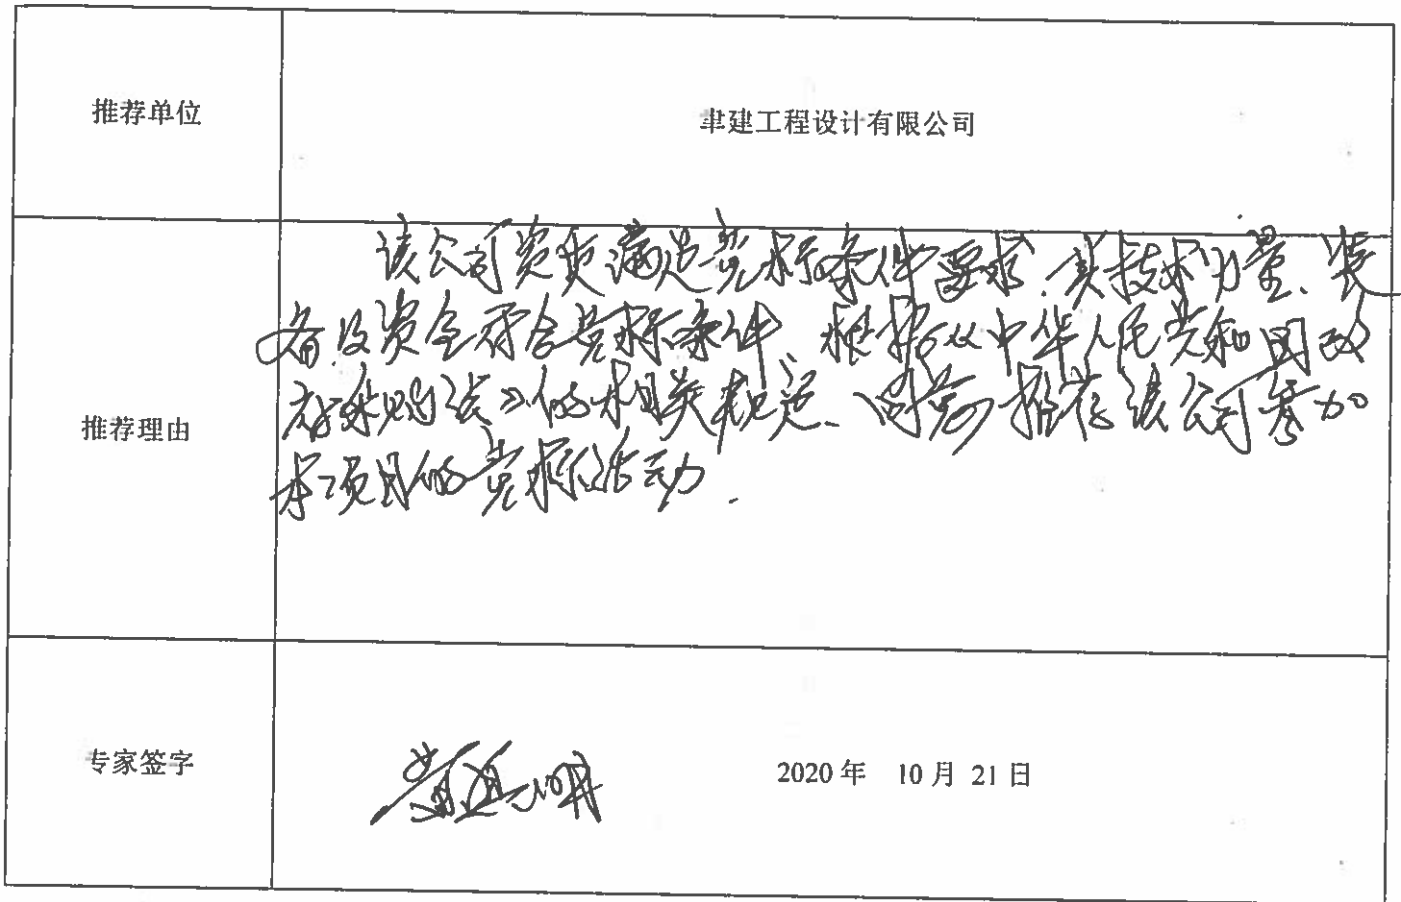 推荐单位
聿建工程设计有限公司
推荐理由
该公司资质满足竞标条件要求.其技术力量、装
备及资金符合竞标条件、根据《中华人民共和国政
府采购法》的相关规定、同意推荐该公司参加
本项目的竞标活动.
专家签字
2020年 10月 21日